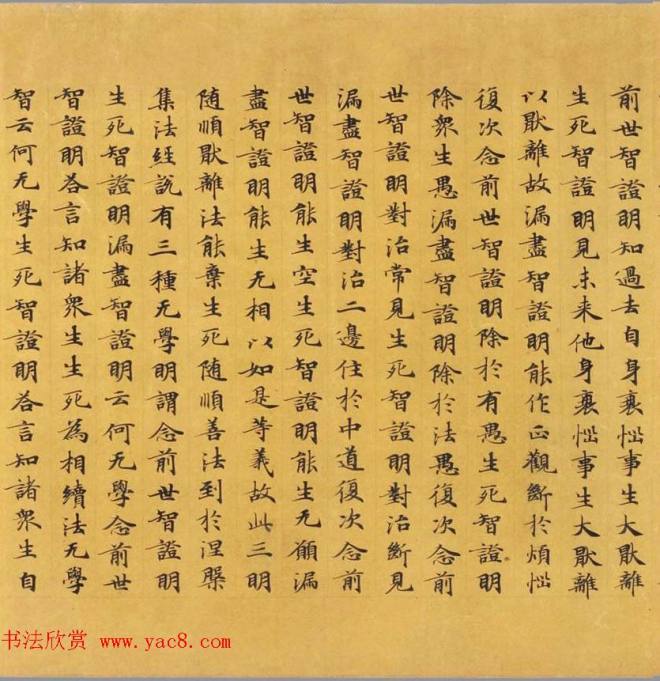 前世智證明知過去自身衰惱事生大猒離
生死智證明見未来他身衰惱事生大猒離
以猒離故漏盡智證明能作正觀斷於煩惱
復次念前世智證明除於有愚生死智證明
除眾生愚漏盡智證明除於法愚復次念前
世智證明對治常見生死智證明對治斷見
漏盡智證明對治二邊住於中道復次念前
世智證明能生空生死智證明能生无願漏
盡智證明能生无相以如是等義故此三明
随順猒離法能棄生死随順善法到於涅槃
集法經說有三種无學明謂念前世智證明
生死智證明漏盡智證明云何无學念前世
智證明荅言知諸眾生生死為相續法无學
智云何无學生死智證明荅言知諸眾生自
书法欣赏 www.yac8.com